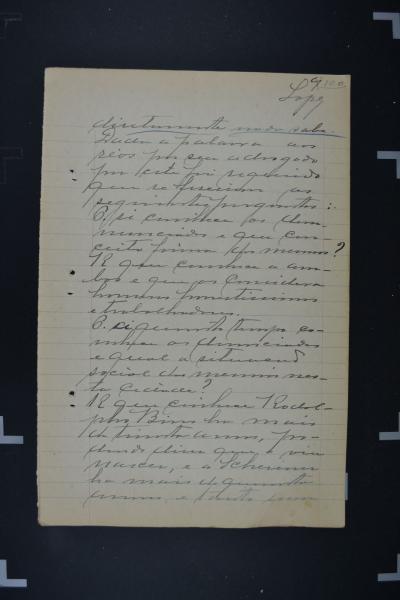 Lopez
directamente nada sabe.
Dada a palavra aos
réos por seu advogado
por este foi requerido
que se fizessem as
seguintes perguntas:
P. si conhece os denunciados
e que conceito
forma dos mesmos?
R que conhece a ambos
e que os considera
homens honestissimos
e trabalhadores.
P. si quanto tempo conhece
os denunciados
e qual a situação
social dos mesmos nesta
cidade?
R que conhece Rodolpho
ha mais
de trinta annos,
que o viu
nascer, e a Scherer
ha mais de quarenta
annos, e tanto um